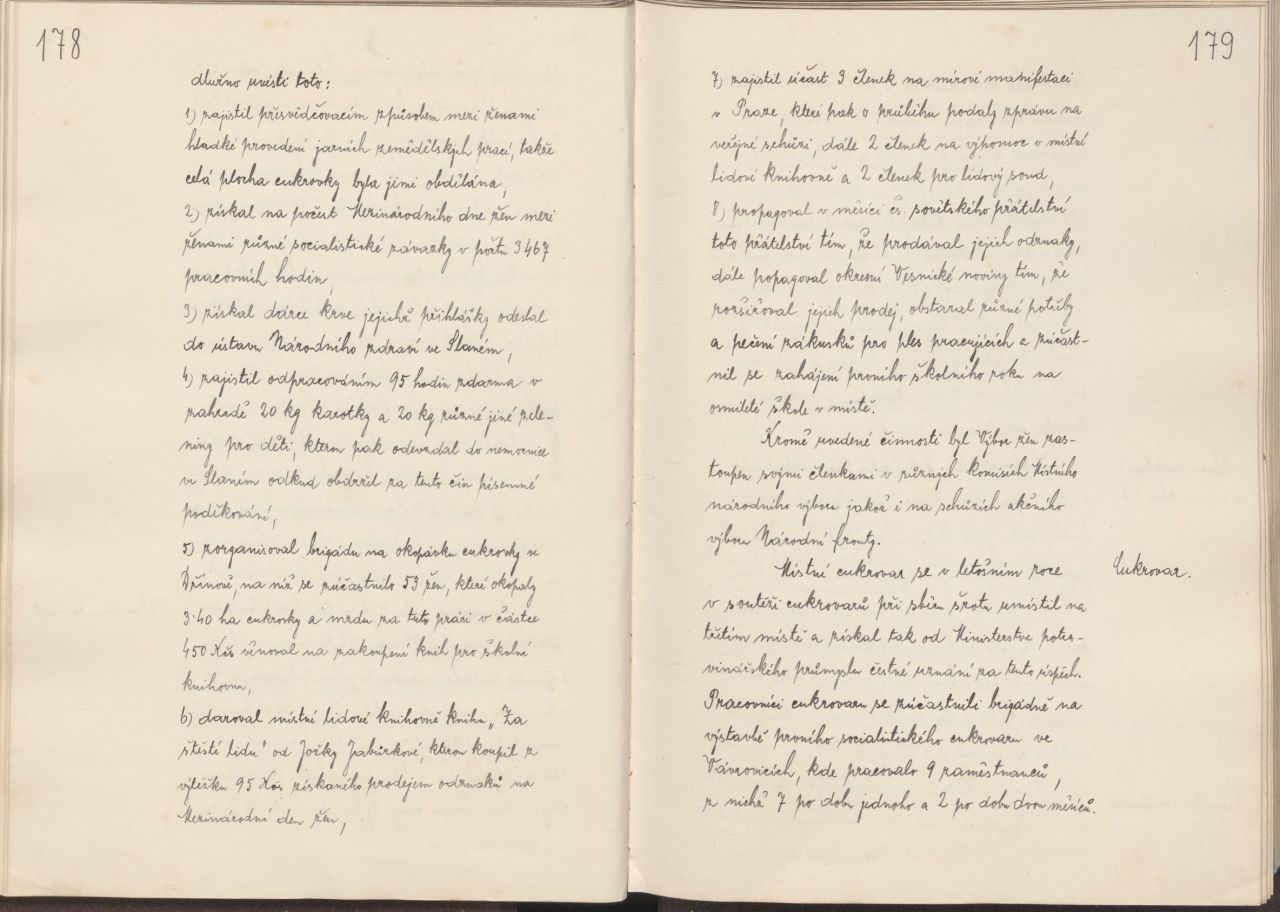 178
dlužno uvésti toto:
1) zajistil přesvědčovacím způsobem mezi ženami
hladké provedení jarních zemědělských prací, takže
celá plocha cukrovky byla jimi obdělána,
2) získal na počest Mezinárodního dne žen mezi
ženami různé socialistické závazky v počtu 3467
pracovních hodin,
3) získal dárce krve jejichž přihlášky odeslal
do ústavu Národního zdraví ve Slaném,
4) zajistil odpracováním 95 hodin zdarma v
zahradě 20 kg karotky a 20 kg různé jiné zele-
niny pro děti, kterou pak odevzdal do nemocnice
ve Slaném odkud obdržel za tento čin písemné
poděkování,
5) zorganisoval brigádu na okopávku cukrovky ve
Dřínově, na níž se zúčastnilo 59 žen, které okopaly
3·40 ha cukrovky a mzdu za tuto práci v částce
450 Kčs věnoval na zakoupení knih pro školní
knihovnu,
6) daroval místní lidové knihovně knihu „Za
štěstí lidu" od Jožky Jabůrkové, kterou koupil z
výtěžku 95 Kčs získaného prodejem odznaků na
Mezinárodní den žen,
179
7) zajistil účast 3 členek na mírové manifestaci
v Praze, které pak o průběhu podaly zprávu na
veřejné schůzi, dále 2 členek na výpomoc v místní
lidové knihovně a 2 členek pro lidový soud,
8) propagoval v měsíci čs. sovětského přátelství
toto přátelství tím, že prodával jejich odznaky,
dále popagoval okresní Vesnické noviny tím, že
rozšiřoval jejich prodej, obstaral různé potřeby
a pečení zákusků pro ples pracujících a zúčast-
nil se zahájení prvního školního roku na
osmileté škole v místě.
Kromě uvedené činnosti byl Výbor žen zas-
toupen svými členkami v různých komisích Místního
národního výboru jakož i na schůzích akčního
výboru Národní fronty.
Místní cukrovar se v letošním roce
Cukrovar.
v soutěži cukrovarů při sběru šrotu umístil na
třetím místě a získal tak od Ministerstva potra-
vinářského průmyslu čestné uznání za tento úspěch.
Pracovníci cukrovaru se zúčastnili brigádně na
výstavbě prvního socialistického cukrovaru ve
Vávrovicích, kde pracovalo 9 zaměstnanců,
z nichž 7 po dobu jednoho a 2 po dobu dvou měsíců.